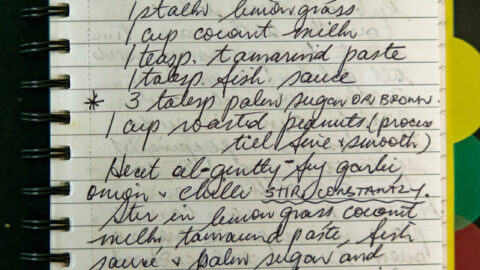 1 stalk lemongrass
1 cup coconut milk
1 teasp. tamarind paste
1 tabesp. fish sauce
* 3 tabesp palm sugar OR BROWN.
1 cup roastd peanuts (process
till fine & smooth)
Heat oil-gently-fry garlic
onion & chilli STIR CONSTANTLY.
Stir in lemongrass coconut
milk tamarind paste, fish
sauce & palm sugar and